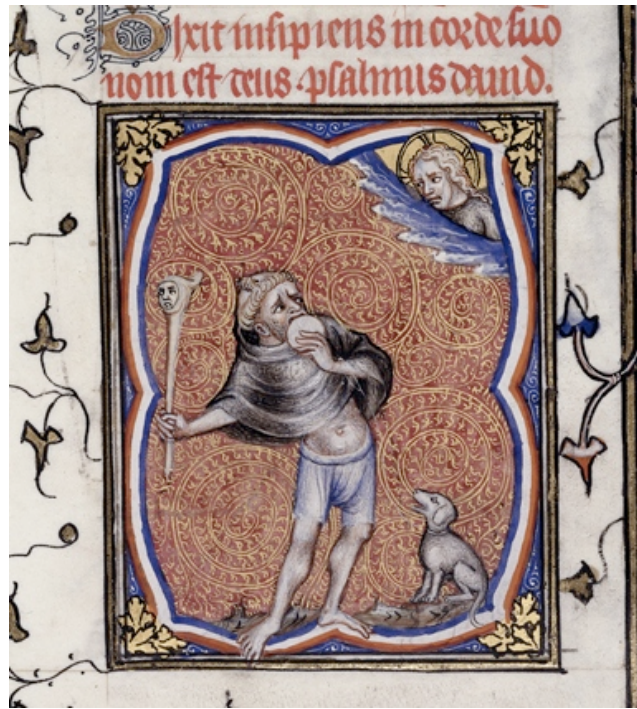 Dixit insipiens in corde suo
nom est deus .psalmus dauid.